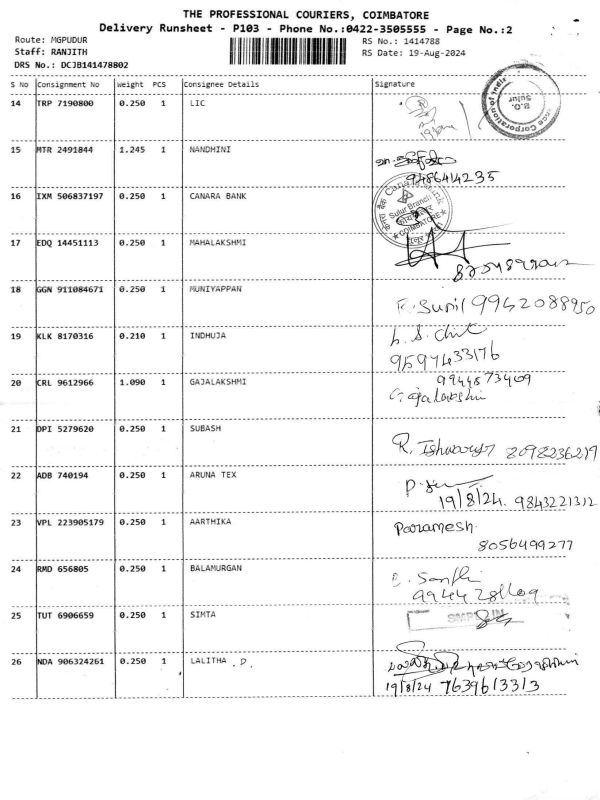 THE PROFESSIONAL COURIERS, COIMBATORE
Delivery Runsheet - P103 - Phone No.:0422-3505555 - Page No.:2
Route: MGPUDUR
RS No.: 1414788
Staff: RANJITH
RS Date: 19-Aug-2024
DRS No.: DCJB141478802
S No Consignment No Weight PCS Consignee Details Signature
14 TRP 7190800 0.250 1 LIC
B.O. Sulur
15 MTR 2491844 1.245 1 NANDHINI
9486414235
16 IXM 506837197 0.250 1 CANARA BANK
Sulur Branch
COIMBATORE
17 EDQ 14451113 0.250 1 MAHALAKSHMI
18 GGN 911084671 0.250 1 MUNIYAPPAN
R. Sunil 9942088950
19 KLK 8170316 0.210 1 INDHUJA
9597433176
20 CRL 9612966 1.090 1 GAJALAKSHMI
9944873409
Gajalakshmi
21 DPI 5279620 0.250 1 SUBASH
8098236219
22 ADB 740194 0.250 1 ARUNA TEX
19/8/24. 9843221312
23 VPL 223905179 0.250 1 AARTHIKA
Paramesh.
8056499277
24 RMD 656805 0.250 1 BALAMURGAN
25 TUT 6906659 0.250 1 SIMTA
26 NDA 906324261 0.250 1 LALITHA . D.
19/8/24 7639613313